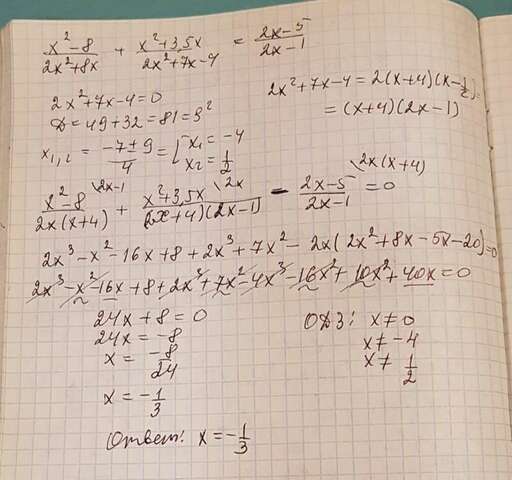 x²-8/2x²+8x + x²+3,5x/2x²+7x-4 = 2x-5/2x-1
2x²+7x-4=0
D=49+32=81=9²
x₁,₂ = -7±9/4 = [x₁=-4 x₂=1/2
2x²+7x-4=2(x+4)(x-1/2)=
=(x+4)(2x-1)
x²-8\2x-1/2x(x+4) + x²+3,5x\2x/(x+4)(2x-1) - 2x-5\2x(x+4)/2x-1 =0
2x³-x²-16x+8+2x³+7x²-2x(2x²+8x-5x-20)=0
2x³-x²-16x+8+2x³+7x²-4x³-16x²+10x²+40x=0
24x+8=0
24x=-8
x= -8/24
x=-1/3
ОДЗ: x≠0
x≠-4
x≠1/2
Ответ: x=-1/3